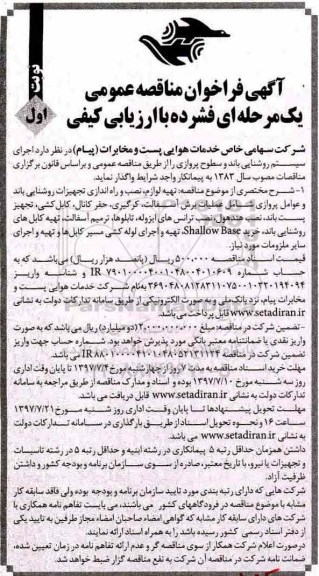 نوبت
اول
آگهی فراخوان مناقصه عمومی
یک مرحله ای فشرده با ارزیابی کیفی
شرکت سهامی خاص خدمات هوایی پست و مخابرات (پیام) در نظر دارد اجرای
سیستم روشنایی باند و سطوح پروازی را از طریق مناقصه عمومی و براساس قانون برگزاری
مناقصات مصوب سال ۱۳۸۳ به پیمانکار واجد شرایط واگذار نماید.
۱- شرح مختصری از موضوع مناقصه: تهیه لوازم، نصب و راه اندازی تجهیزات روشنایی باند
و عوامل پروازی شامل عملیات برش آسفالت، کرگیری، حفر کانال، کابل کشی، تجهیز
پست باند، نصب جدول، نصب ترانس های ایزوله، تابلوها، ترمیم آسفالت، تهیه کابل های
روشنایی باند، خرید Shallow Base، تهیه و اجرای لوله کشی مسیر کابل ها و تهیه و اجرای
سایر ملزومات مورد نیاز.
قیمت اسناد مناقصه ۵۰۰.۰۰۰ ریال (پانصد هزار ریال) می باشد که به
حساب شماره IR و شناسه واریز
به نام شرکت خدمات هوایی پست و
مخابرات پیام، نزد بانک ملی و به صورت الکترونیکی از طریق سامانه تدارکات دولت به نشانی
www.setadiran.ir قابل پرداخت می باشد.
- تضمین شرکت در مناقصه: مبلغ ۲.۰۰۰.۰۰۰.۰۰۰ (دو میلیارد) ریال می باشد که به صورت
واریز نقدی یا ضمانتنامه معتبر بانکی مورد پذیرش خواهد بود. شماره حساب جهت واریز
تضمین شرکت در مناقصه IR می باشد.
مهلت خرید اسناد مناقصه به مدت ۷ روز از چهارشنبه مورخ ۱۳۹۷/۷/۴ تا پایان وقت اداری
روز سه شنبه مورخ ۱۳۹۷/۷/۱۰ بوده و اسناد و مدارک مناقصه از طریق مراجعه به سامانه
تدارکات دولت به نشانی www.setadiran.ir قابل دریافت می باشد.
مهلت تحویل پیشنهادها تا پایان وقت اداری روز شنبه مورخ ۱۳۹۷/۷/۲۱
ساعت ۱۶ و نحوه تحویل اسناد از طریق بارگذاری در سامانه تدارکات دولت
به نشانی www.setadiran.ir می باشد.
داشتن همزمان حداقل رتبه ۵ پیمانکاری در رشته ابنیه و حداقل رتبه ۵ در رشته تاسیسات
و تجهیزات یا نیرو، با تاریخ معتبر، صادره از سوی سازمان برنامه و بودجه کشور و داشتن
ظرفیت آزاد.
شرکت هایی که دارای رتبه بندی مورد تایید سازمان برنامه و بودجه بوده ولی فاقد سابقه کار
مشابه با موضوع مناقصه در فرودگاههای کشور می باشند، می بایست تفاهم نامه همکاری با
شرکت های دارای سابقه کار مشابه که گواهی امضاء صاحبان امضاء مجاز طرفین به تایید یکی
از دفتر اسناد رسمی کشور رسیده باشد را به همراه اسناد ارائه نمایند.
در صورت اعلام شرکت همکار از سوی مناقصه گر و عدم ارائه تفاهم نامه در زمان تعیین شده،
ضمانت نامه شرکت در مناقصه آن شرکت به نفع مناقصه گزار ضبط خواهد شد.